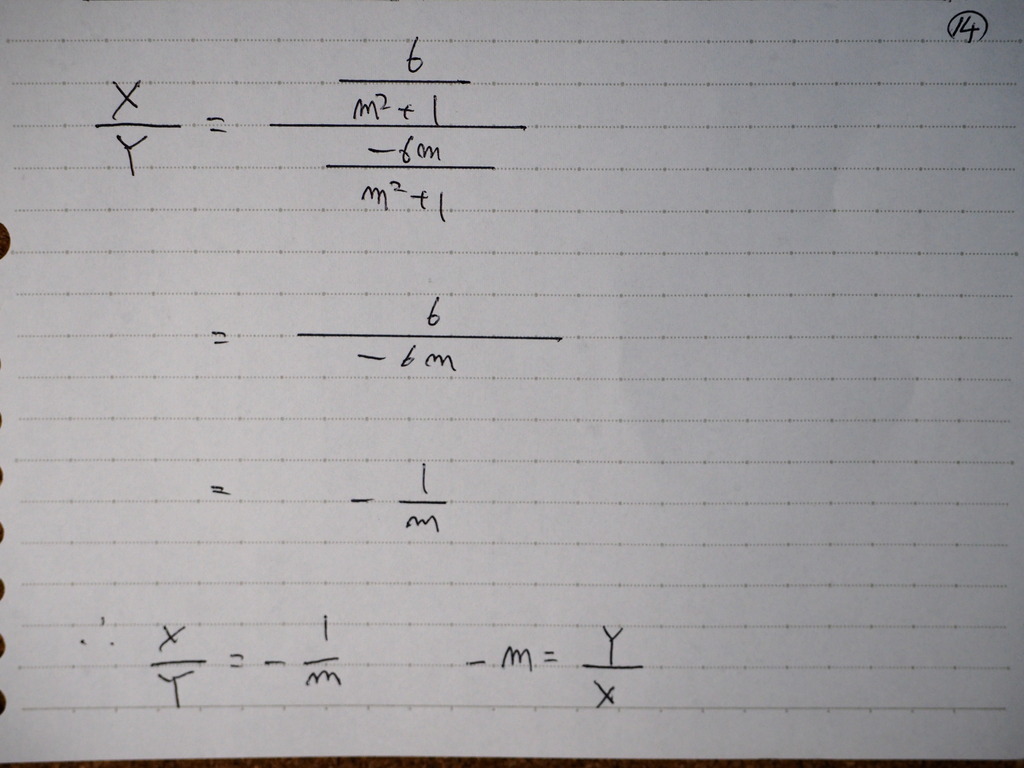 ⑭
X/Y = (6/(m²+1))/(-6m/(m²+1))
= 6/(-6m)
= - 1/m
∴ X/Y = - 1/m   - m = Y/X